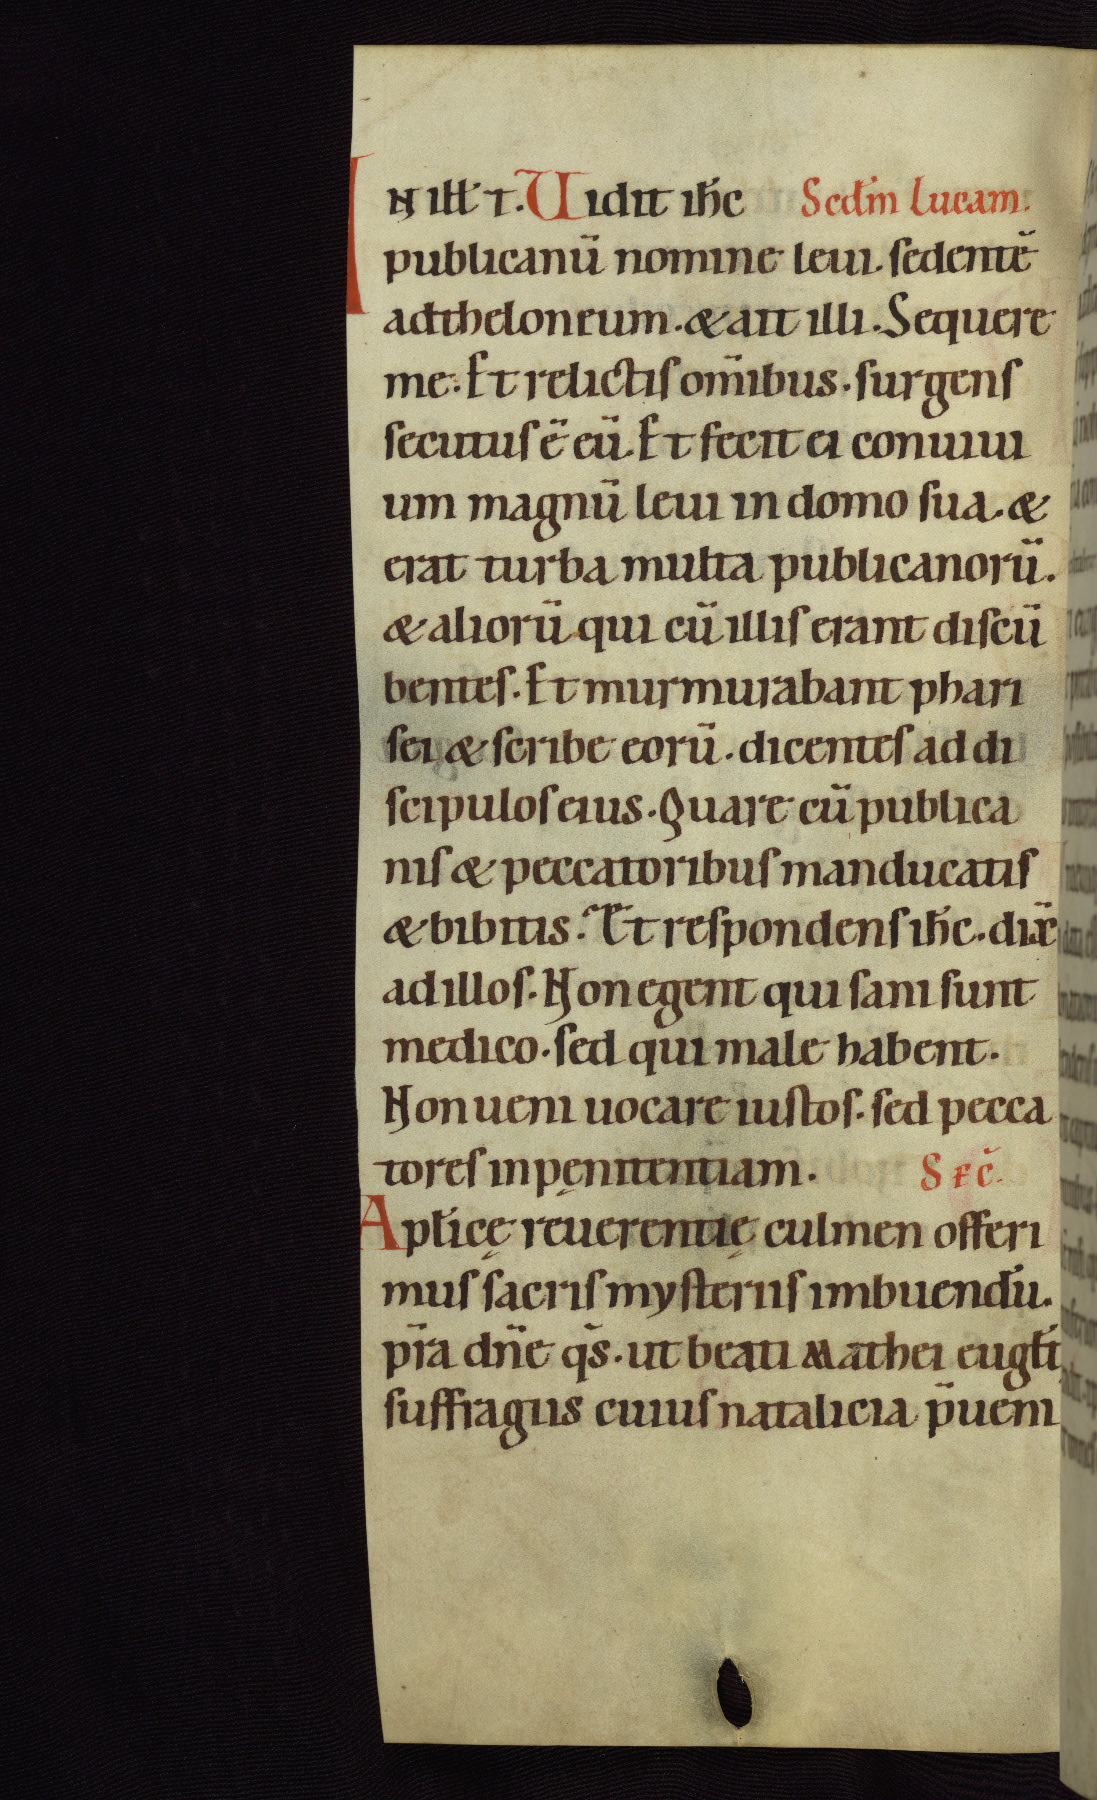 IN ill̄ t̄. Uidit ih̄c Scd̄m lucam.
publicanū nomine leui. sedentē
ad theloneum. & ait illi. Sequere
me. Et relictis om̄ibus. surgens
secutus ē eū. Et fecit ei conuiui
um magnū leui in domo sua. &
erat turba multa publicanorū.
& aliorū qui cū illis erant discū
bentes. Et murmurabant phari
sei & scribe eorū. dicentes ad di
scipulos eius. Quare cū publica
nis & peccatoribus manducatis
& bibitis. Et respondens ih̄c. dix̄
ad illos. Non egent qui sani sunt
medico. sed qui male habent.
Non ueni uocare iustos. sed pecca
tores in pęnitentiam. SEC̄.
Apl̄icę reuerentię culmen offeri
mus sacris mysteriis imbuend̄u.
p̄ra dn̄e q̄s. ut beati Mathei eugl̄i
suffragiis cuius natalicia p̄ueni